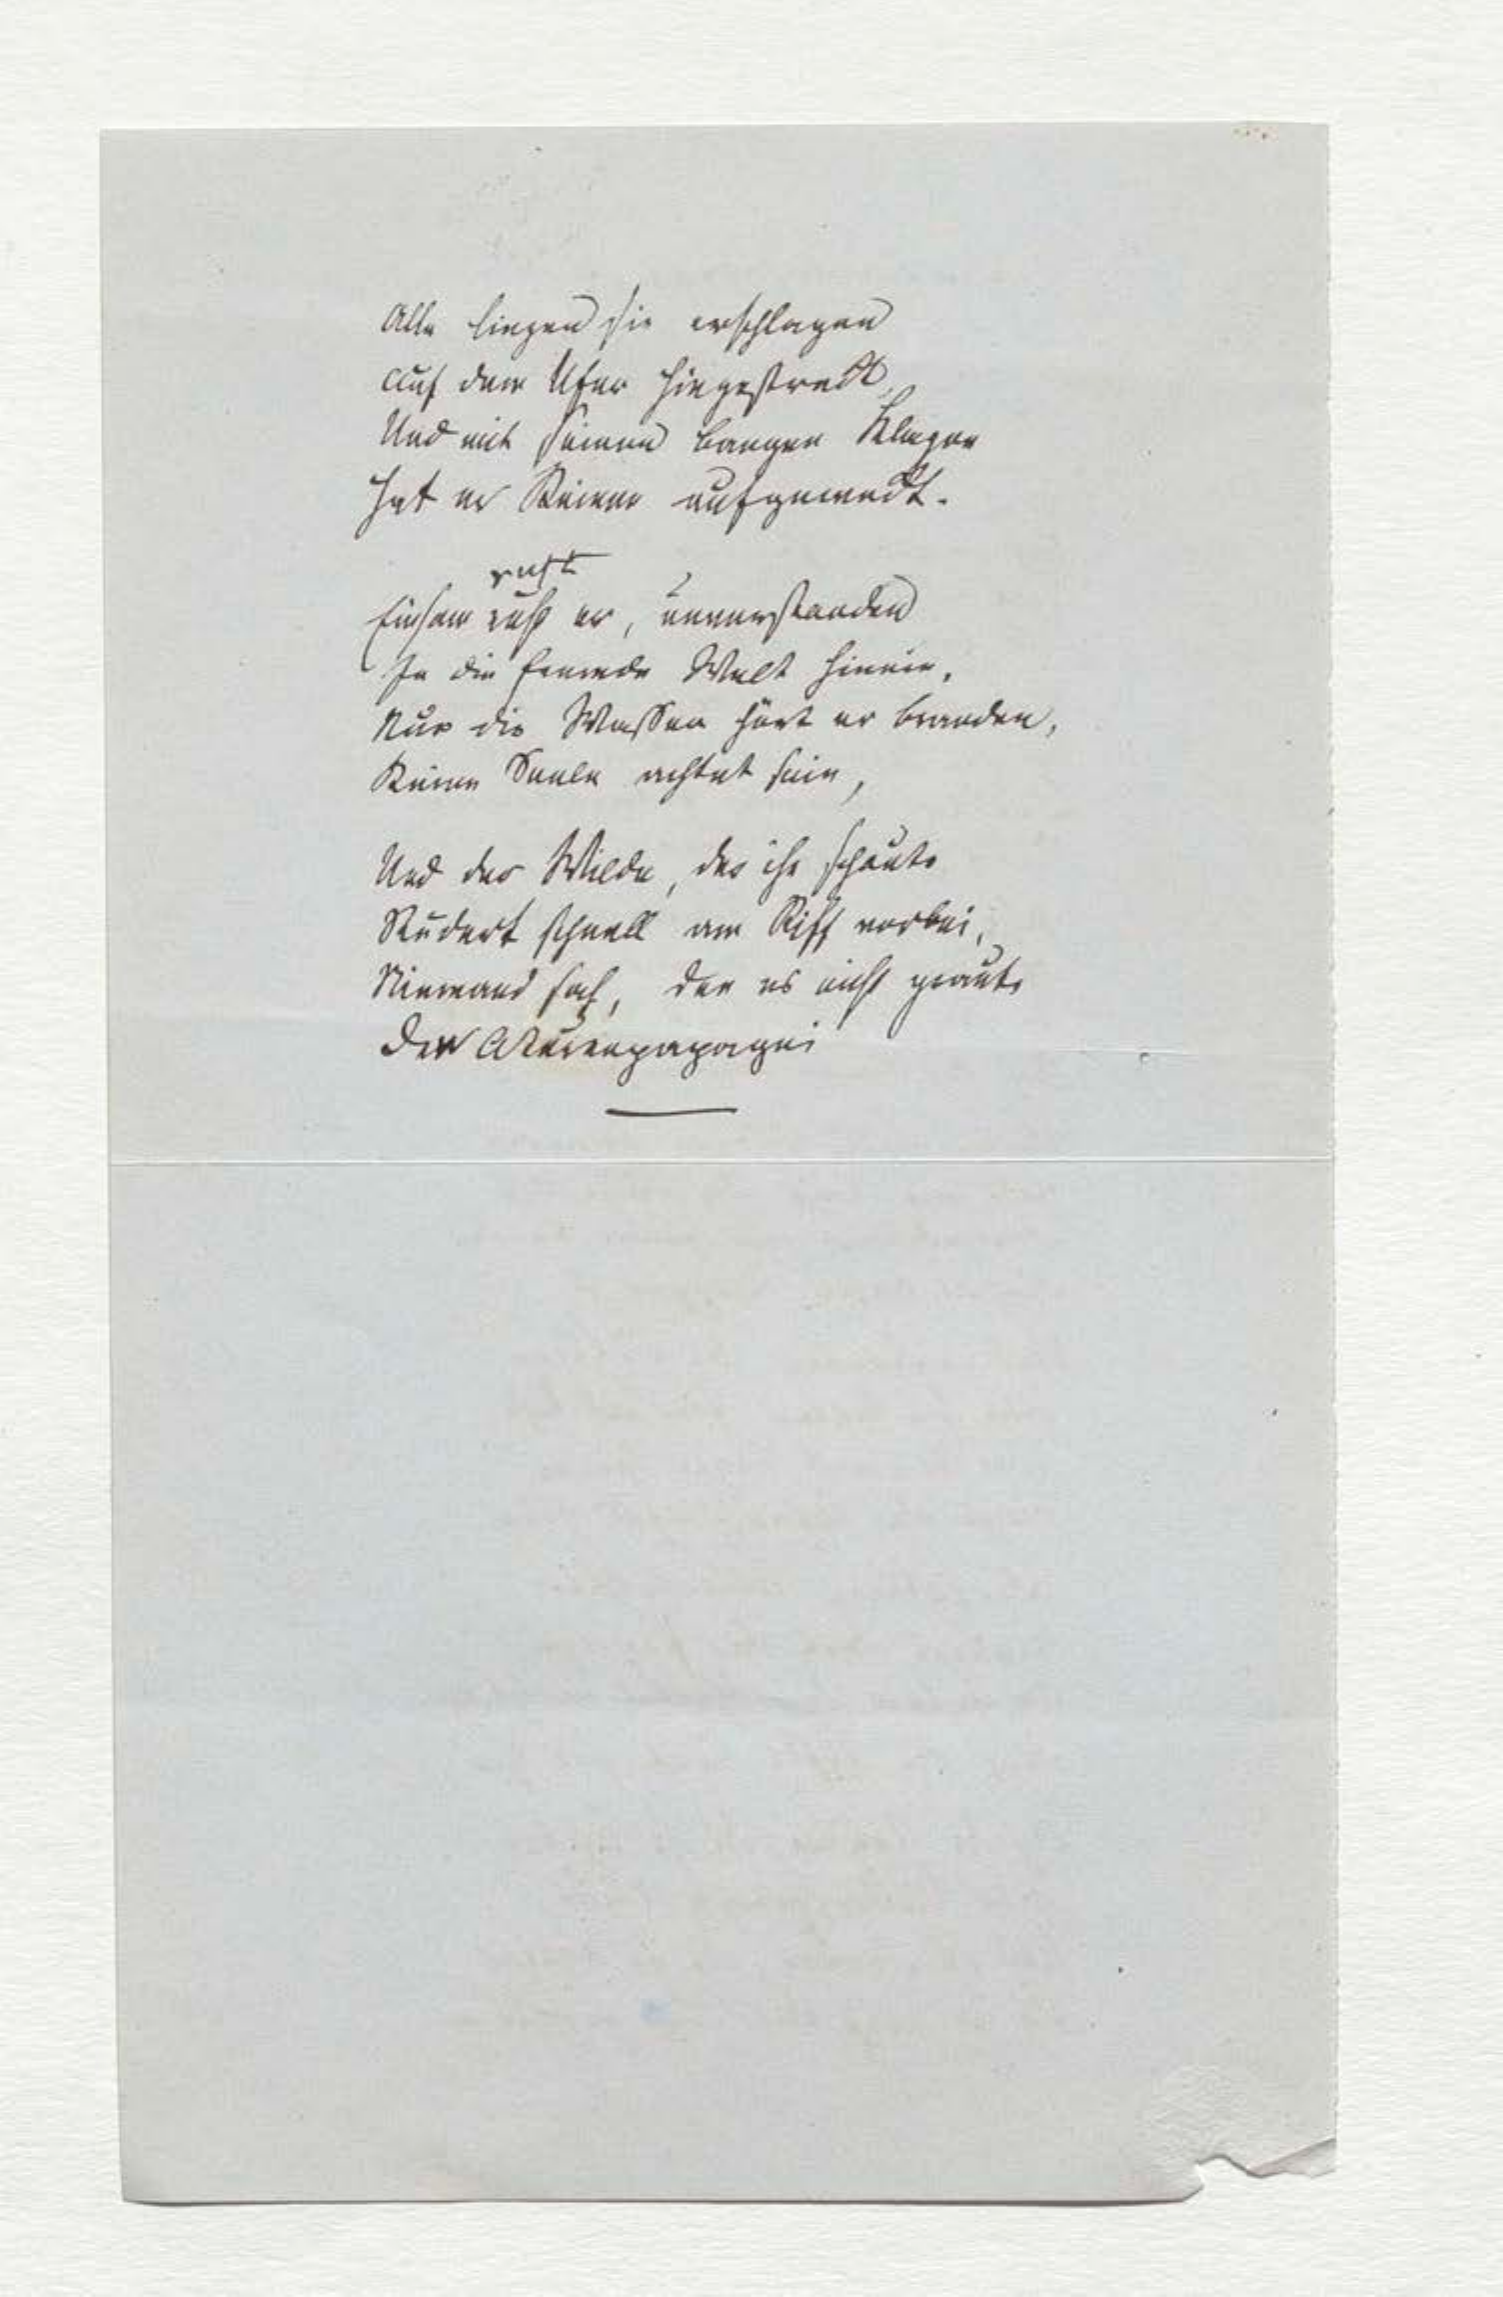 Alle liegen sie erschlagen
Auf dem Ufer hingestreckt,
Und mit seinen bangen Klagen
Hat er Keinen aufgeweckt.
ruft
Einsam ruft er, unverstanden
In die fremde Welt hinein,
Nur die Wasser hört er branden,
Keine Seele achtet sein,
Und der Wilde, der ihn schaute
Rudert schnell am Riff vorbei,
Niemand sah, dem es nicht graute
Den Aturenpapagei